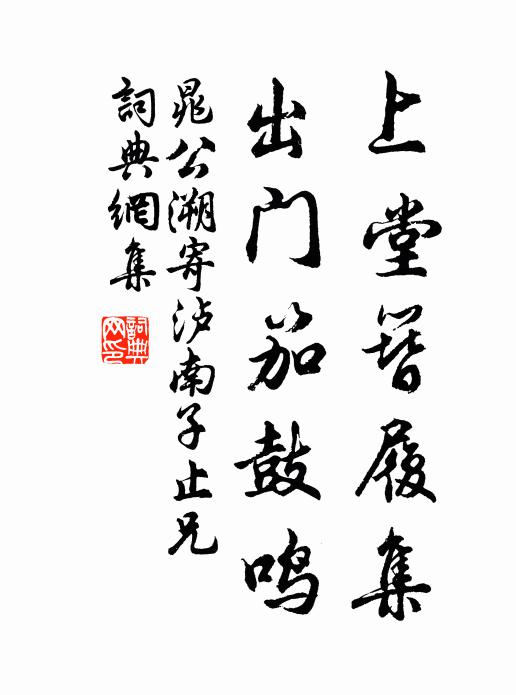 上堂簪履集
出门笳鼓鸣
晁公溯寄泸南子止兄
詞典網集
詞典網印